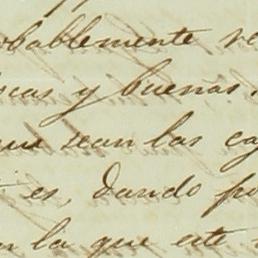 obablemente re
scas y buenas.
que sean las ca
es, dando po
en la que este